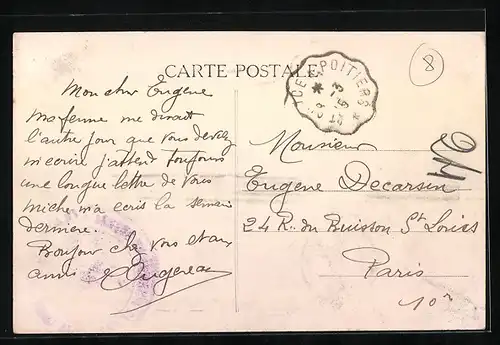 CARTE POSTALE
POITIERS
8
Mon cher Eugène
Ma femme me disait
l'autre jour que vous devez
m'écrire j'attend toujours
une longue lettre de vous
miche m'a écris la semain
dernière.
Bonjour chez vous et aux
amis Augereau
Monsieur
Eugène Decarsin
24 R. du Buisson St Louis
Paris
10e